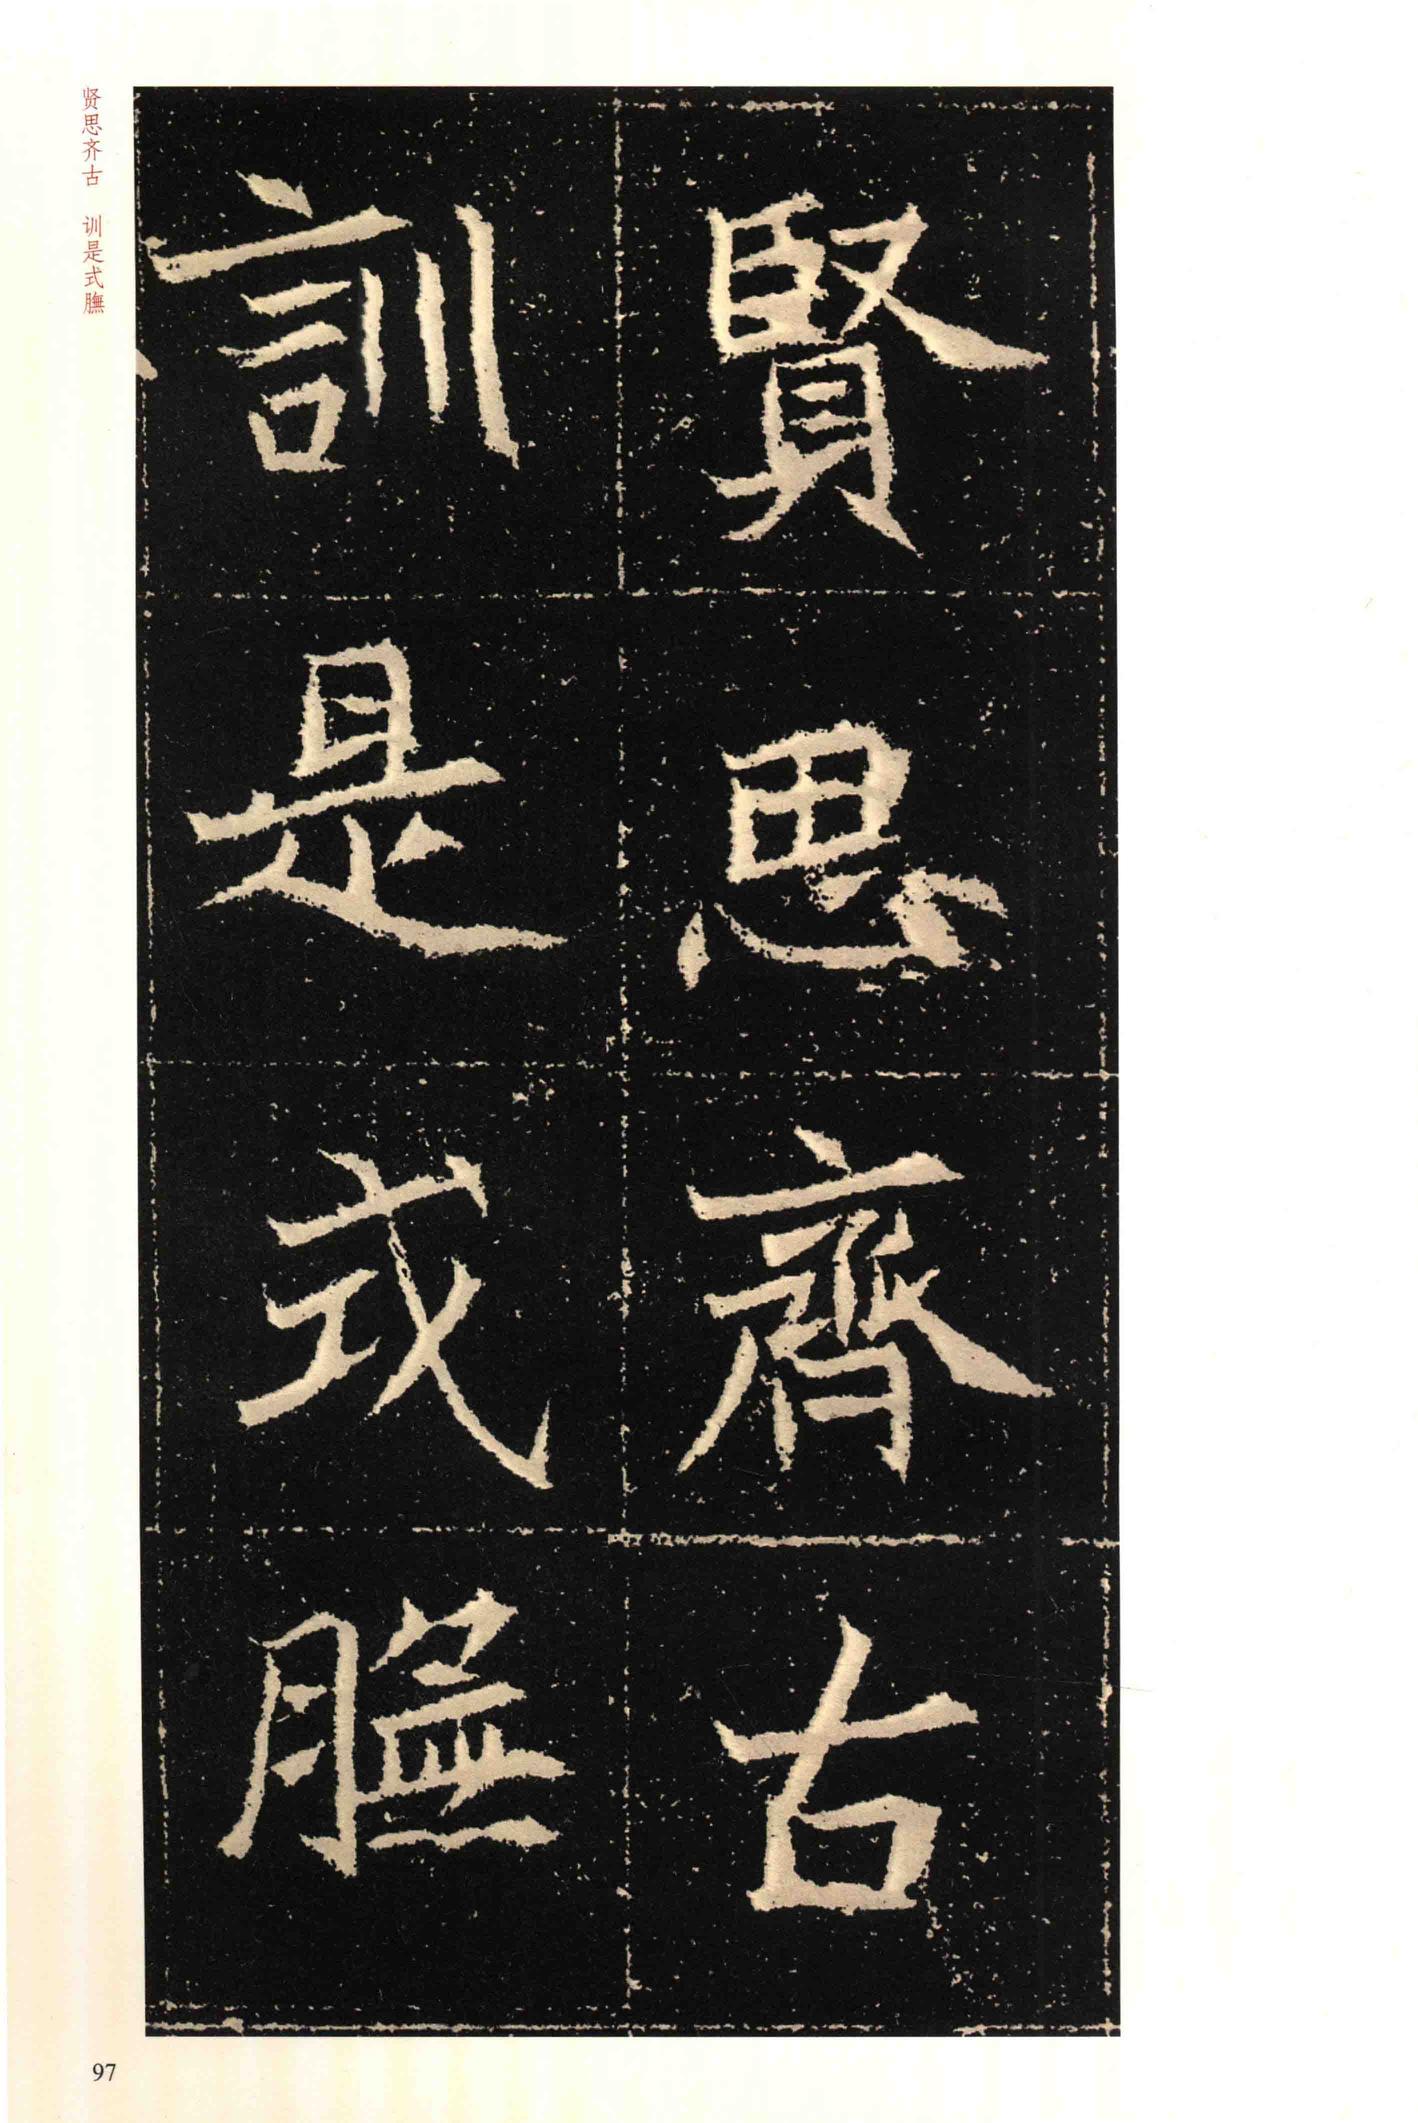 賢思齊古
訓是式膴
贤思齐古 训是式膴
97